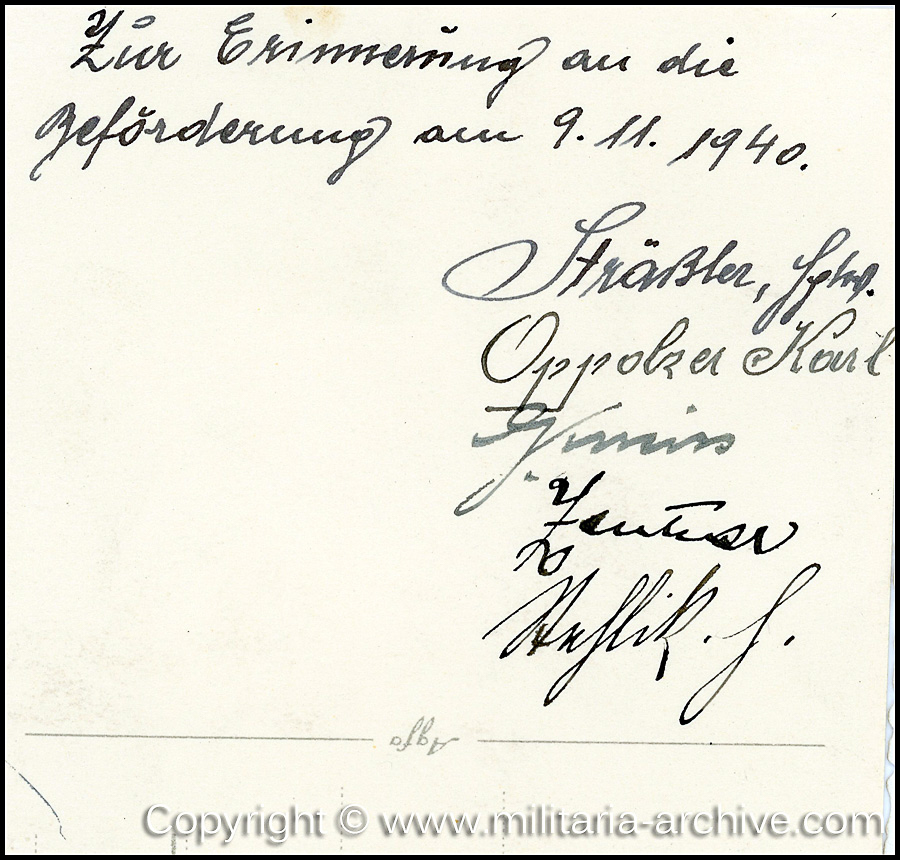 Zur Erinnerung an die
Beförderung am 9. 11. 1940.
Sträßler, Hptw.
Oppolzer Karl
Stehlik. H.
Agfa
Copyright © www.militaria-archive.com